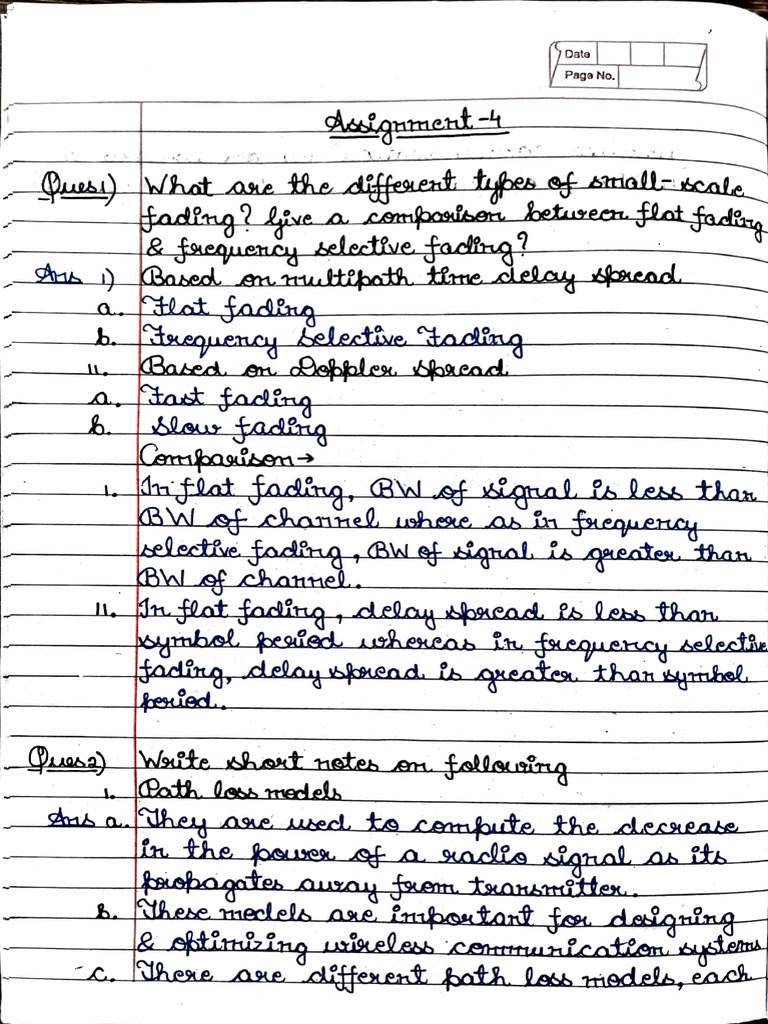 Date
Page No.
Assignment-4
Ques1) What are the different types of small-scale
fading? Give a comparison between flat fading
& frequency selective fading?
Ans 1) Based on multipath time delay spread
a. Flat fading
b. Frequency Selective Fading
11. Based on Doppler spread
a. Fast fading
b. Slow fading
Comparison→
1. In flat fading, BW of signal is less than
BW of channel where as in frequency
selective fading, BW of signal is greater than
BW of channel.
11. In flat fading, delay spread is less than
symbol period whereas in frequency selective
fading, delay spread is greater than symbol
period.
Ques2) Write short notes on following
1. Path loss models
Ans a. They are used to compute the decrease
in the power of a radio signal as its
propagates away from transmitter.
b. These models are important for designing
& optimizing wireless communication systems
c. There are different path loss models, each